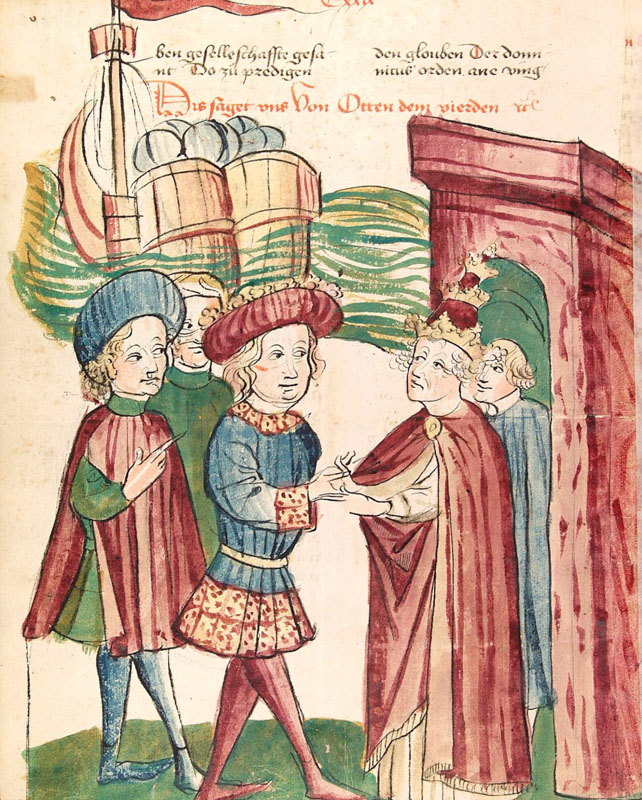 ben geselleschafft gesa-
nt Do zů predigen
den glouben Der domi-
nicus orden ane ving
Dis saget vns von Otten dem vierden